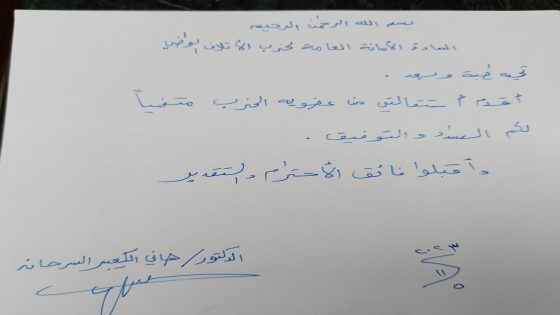 بسم الله الرحمن الرحيم
السادة الأمانة العامة لحزب الأتلاف الوطني
تحية طيبة وبعد .
أقدم أستقالتي من عضوية الحزب متمنياً
لكم السداد والتوفيق .
وأقبلوا فائق الأحترام والتقدير
٢٠٢٣
١١
٥
الدكتور/ هاني الكعيبر السرحان